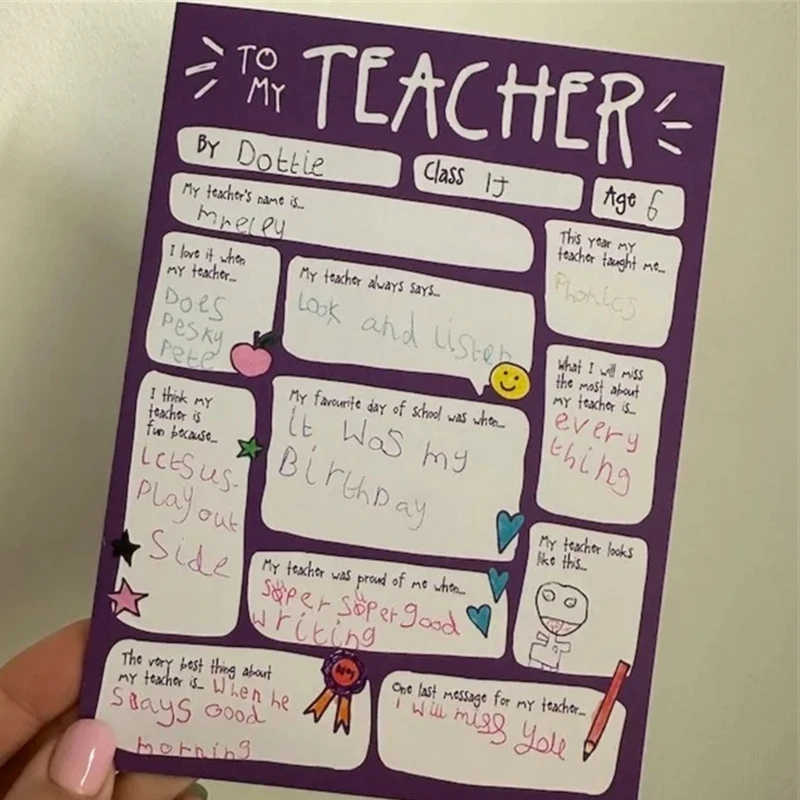 TO MY TEACHER
BY Dottie
Class 1J
Age 6
My teacher's name is...
mreley
This year my
teacher taught me...
Phonics
I love it when
my teacher...
Does
Pesky
Pete
My teacher always says...
Look and listen
What I will miss
the most about
my teacher is...
every
thing
I think my
teacher is
fun because...
Lets us
Play out
Side
My favourite day of school was when...
it was my
Birthday
My teacher looks
like this...
My teacher was proud of me when...
super super good
writing
The very best thing about
my teacher is... When he
says Good
morning
One last message for my teacher...
I will miss you